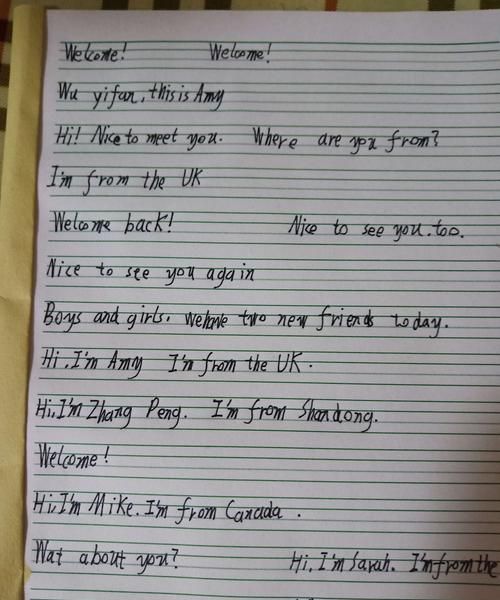 Welcome! Welcome!
Wu yifan, this is Amy
Hi! Nice to meet you. Where are you from?
I'm from the UK
Welcome back! Nice to see you.too.
Nice to see you again
Boys and girls. we have two new friends today.
Hi,I'm Amy I'm from the UK.
Hi,I'm Zhang Peng. I'm from Shandong.
Welcome!
Hi,I'm Mike. I'm from Canada.
Wat about you? Hi, I'm Sarah. I'm from the